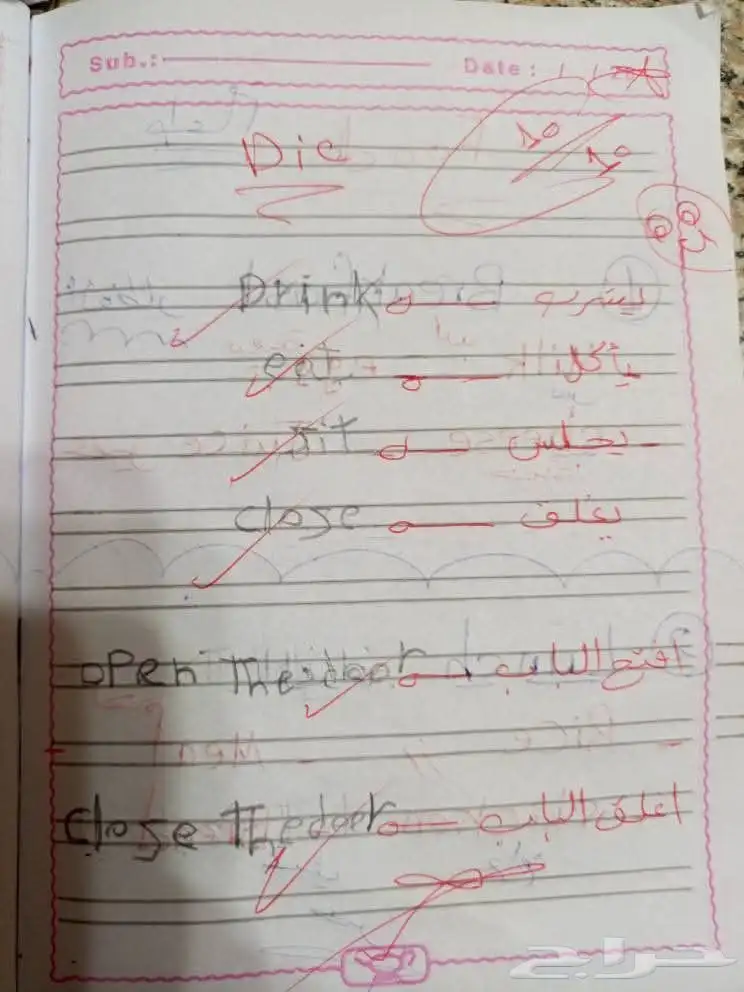 Sub.: Date :
Dic
10/10
Drink يشرب
eat يأكل
sit يجلس
close يغلق
open The door افتح الباب
Close The door اغلق الباب
حراج